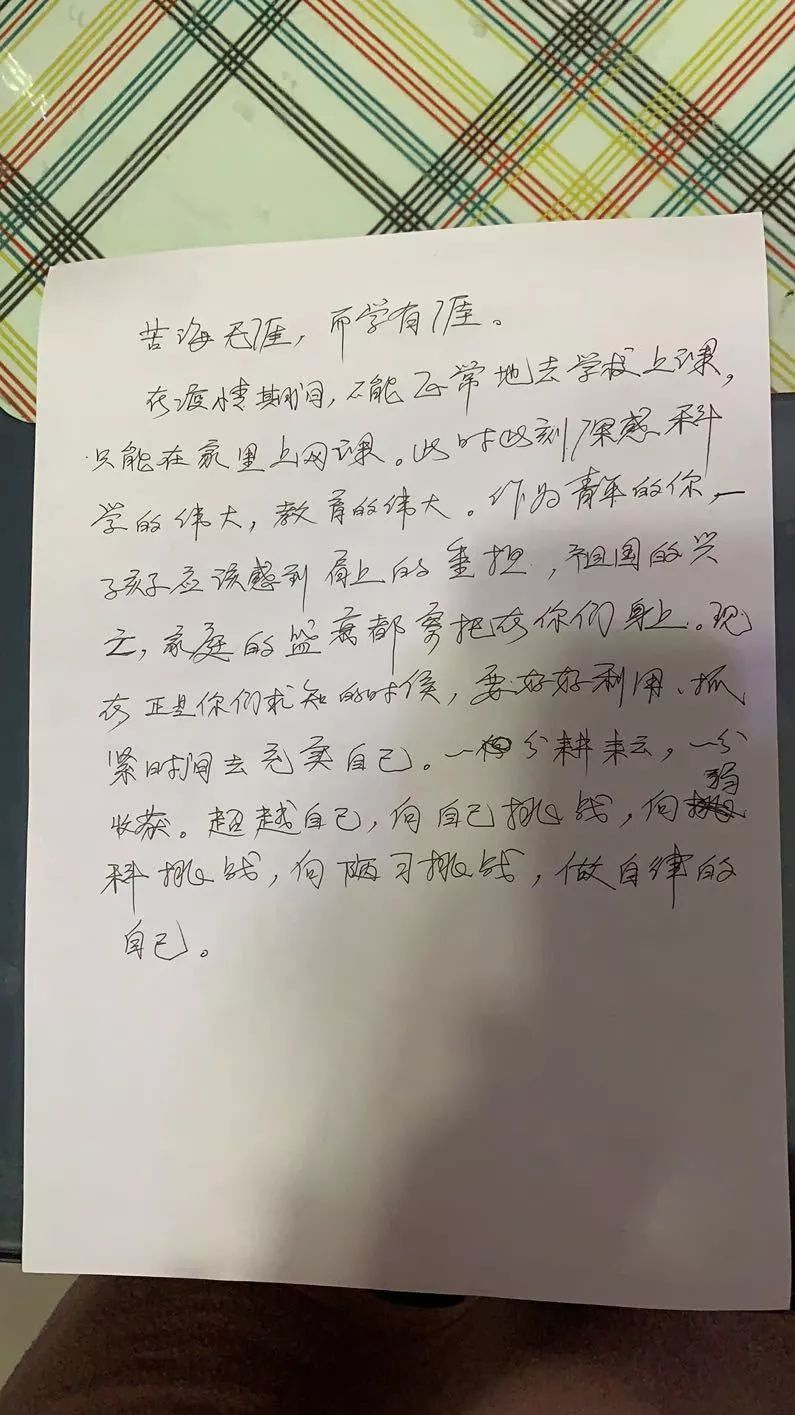 苦海无涯，而学有涯。
在疫情期间，不能正常地去学校上课，
只能在家里上网课。此时此刻深感科
学的伟大，教育的伟大。作为青年的你，一
孩子应该感到肩上的重担，祖国的兴
亡，家庭的盛衰都寄托在你们身上。现
在正是你们求知的时候，要好好利用、抓
紧时间去充实自己。一分耕耘，一分
收获。超越自己，向自己挑战，向弱
科挑战，向陋习挑战，做自律的
自己。